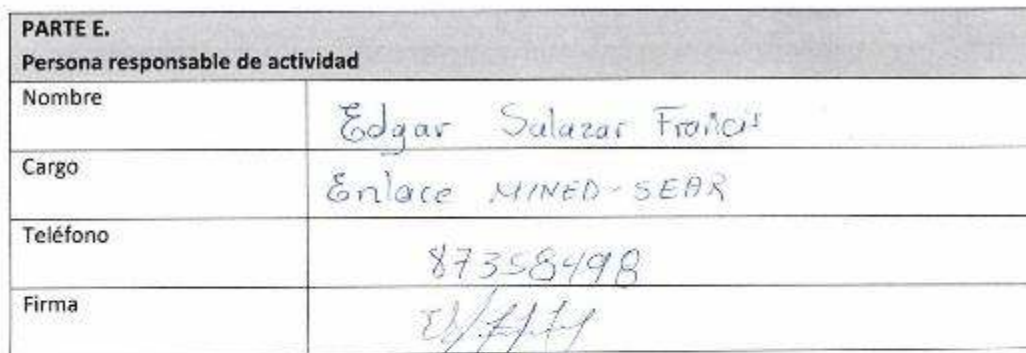 PARTE E.
Persona responsable de actividad
Nombre
Edgar Salazar Francis
Cargo
Enlace MINED-SEAR
Teléfono
87358498
Firma